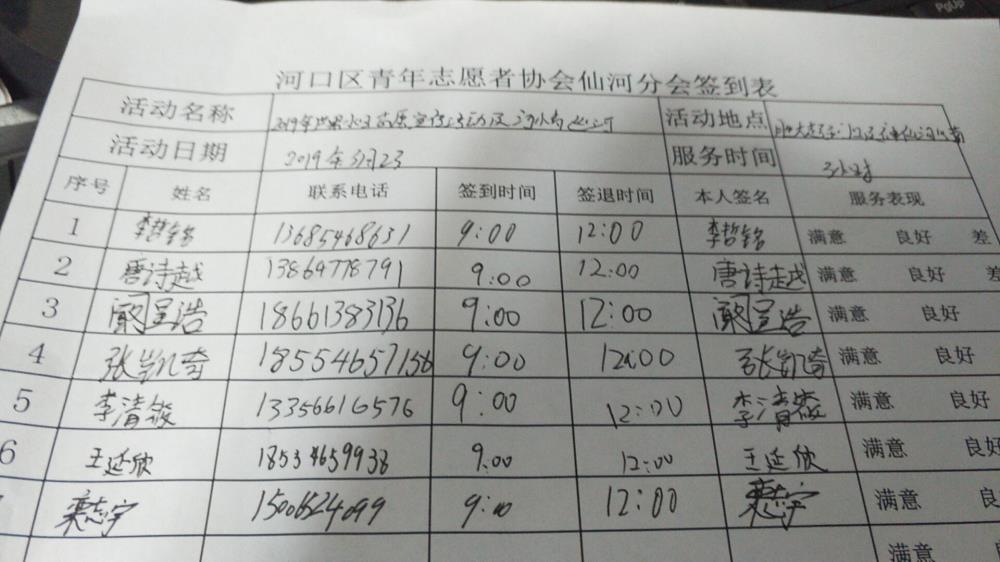 PgUp
河口区青年志愿者协会仙河分会签到表
活动名称 2019年世界水日 活动地点
活动日期 2019年3月23 服务时间 3小时
序号 姓名 联系电话 签到时间 签退时间 本人签名 服务表现
1 李哲铭 13685468631 9:00 12:00 李哲铭 满意 良好 差
2 唐诗越 13869778791 9:00 12:00 唐诗越 满意 良好 差
3 阚呈浩 18661383136 9:00 12:00 阚呈浩 满意 良好
4 张凯奇 18554657156 9:00 12:00 张凯奇 满意 良好
5 李清筱 13356616576 9:00 12:00 李清筱 满意 良好
6 王延欣 18534659938 9:00 12:00 王延欣 满意 良好
栾志宇 15006524099 9:00 12:00 栾志宇 满意 良
满意